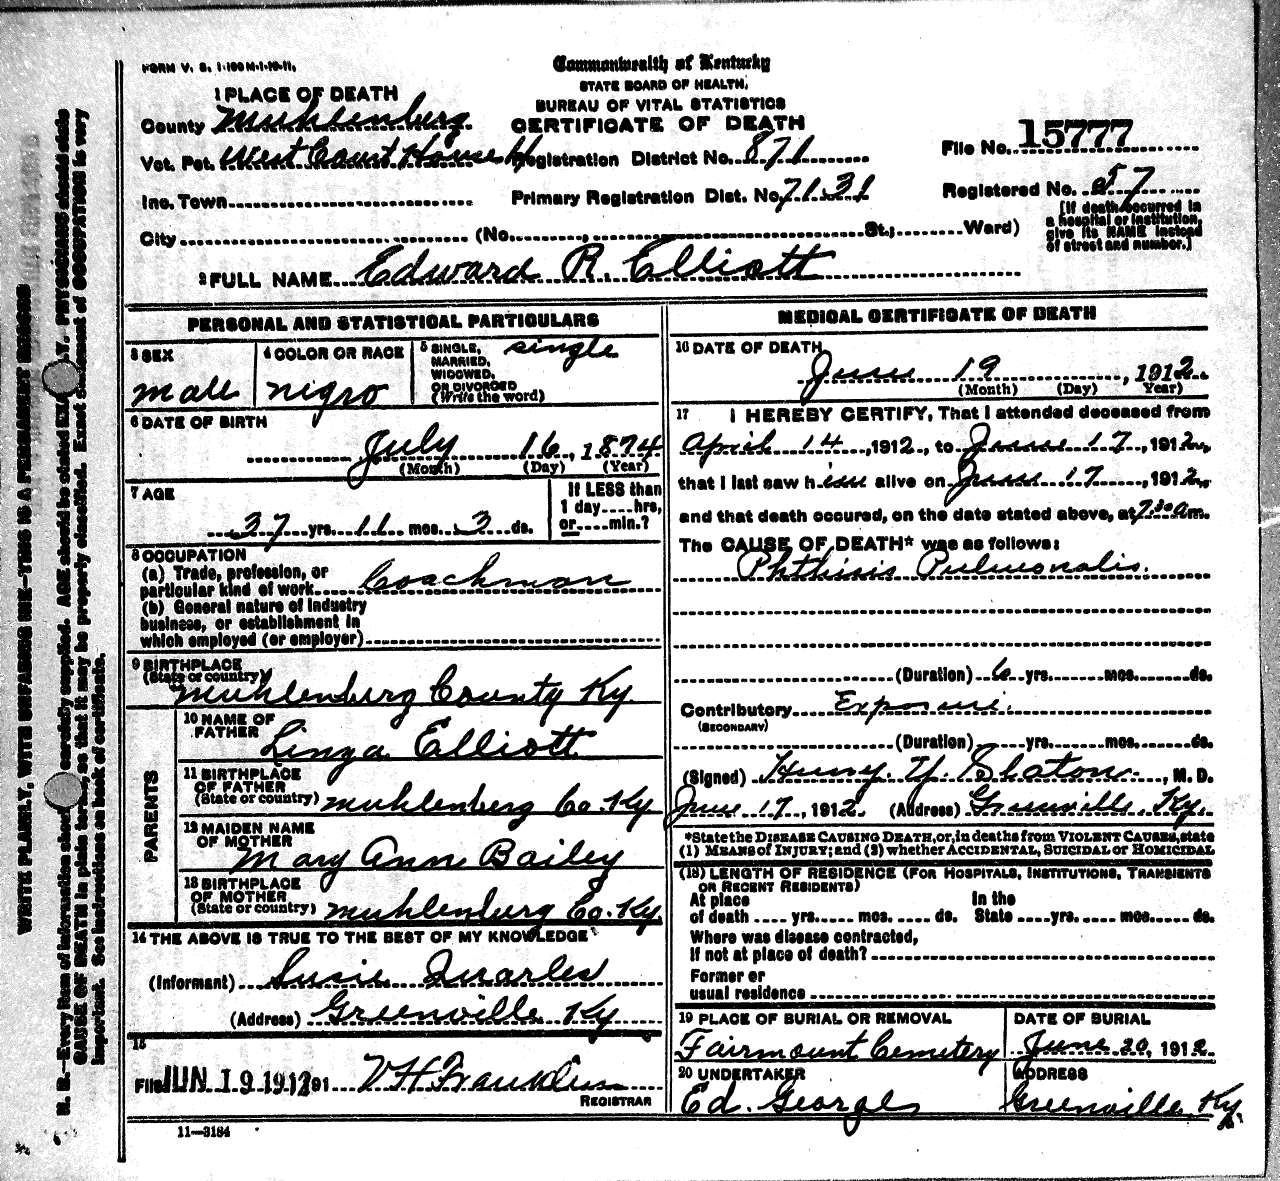 FORM V. S. 1-100M-1-19-11.
Commonwealth of Kentucky
STATE BOARD OF HEALTH,
BUREAU OF VITAL STATISTICS
CERTIFICATE OF DEATH
1 PLACE OF DEATH
County Muhlenburg
Vot. Pct. West Court House
Registration District No. 871
File No. 15777
Inc. Town
Primary Registration Dist. No. 7131
Registered No. 57
City (No. , St.; Ward)
[If death occurred in
a hospital or institution,
give its NAME instead
of street and number.]
2 FULL NAME Edward R. Elliott
PERSONAL AND STATISTICAL PARTICULARS
3 SEX
male
4 COLOR OR RACE
nigro
5 SINGLE,
MARRIED,
WIDOWED,
OR DIVORCED
(Write the word)
single
6 DATE OF BIRTH
July 16, 1874
(Month) (Day) (Year)
7 AGE
37 yrs. 11 mos. 3 ds.
If LESS than
1 day....hrs,
or....min.?
8 OCCUPATION
(a) Trade, profession, or
particular kind of work Coachman
(b) General nature of industry
business, or establishment in
which employed (or employer)
9 BIRTHPLACE
(State or country)
Muhlenburg County Ky.
PARENTS
10 NAME OF
FATHER
Linza Elliott
11 BIRTHPLACE
OF FATHER
(State or country) Muhlenburg Co. Ky
12 MAIDEN NAME
OF MOTHER
Mary Ann Bailey
13 BIRTHPLACE
OF MOTHER
(State or country) Muhlenburg Co. Ky.
14 THE ABOVE IS TRUE TO THE BEST OF MY KNOWLEDGE
(Informant) Susie Quarles
(Address) Greenville Ky
15
Filed JUN 19 1912 191 V H Franklin
REGISTRAR
11-3184
MEDICAL CERTIFICATE OF DEATH
16 DATE OF DEATH
June 19, 1912
(Month) (Day) Year)
17 I HEREBY CERTIFY, That I attended deceased from
April 14, 1912, to June 17, 1912,
that I last saw him alive on June 17, 1912,
and that death occured, on the date stated above, at 7:30 am.
The CAUSE OF DEATH* was as follows:
Phthisis Pulmonalis.
(Duration) 6 yrs. mos. ds.
Contributory Exposure.
(SECONDARY)
(Duration) yrs. mos. ds.
(Signed) Henry Y. Slaton, M. D.
June 17, 1912 (Address) Greenville Ky.
*State the DISEASE CAUSING DEATH, or, in deaths from VIOLENT CAUSES, state
(1) MEANS of INJURY; and (2) whether ACCIDENTAL, SUICIDAL or HOMICIDAL
(18) LENGTH OF RESIDENCE (FOR HOSPITALS, INSTITUTIONS, TRANSIENTS
OR RECENT RESIDENTS)
At place In the
of death .... yrs.... mos. ... ds. State ....yrs..... mos.... ds.
Where was disease contracted,
If not at place of death?
Former or
usual residence
19 PLACE OF BURIAL OR REMOVAL
Fairmount Cemetery
DATE OF BURIAL
June 20, 1912
20 UNDERTAKER
Ed. Georges
ADDRESS
Greenville Ky.
WRITE PLAINLY, WITH UNFADING INK—THIS IS A PERMANENT RECORD
N. B.—Every item of information should be carefully supplied. AGE should be stated EXACTLY. PHYSICIANS should state
CAUSE OF DEATH in plain terms, so that it may be properly classified. Exact statement of OCCUPATION is very
important. See instructions on back of certificate.